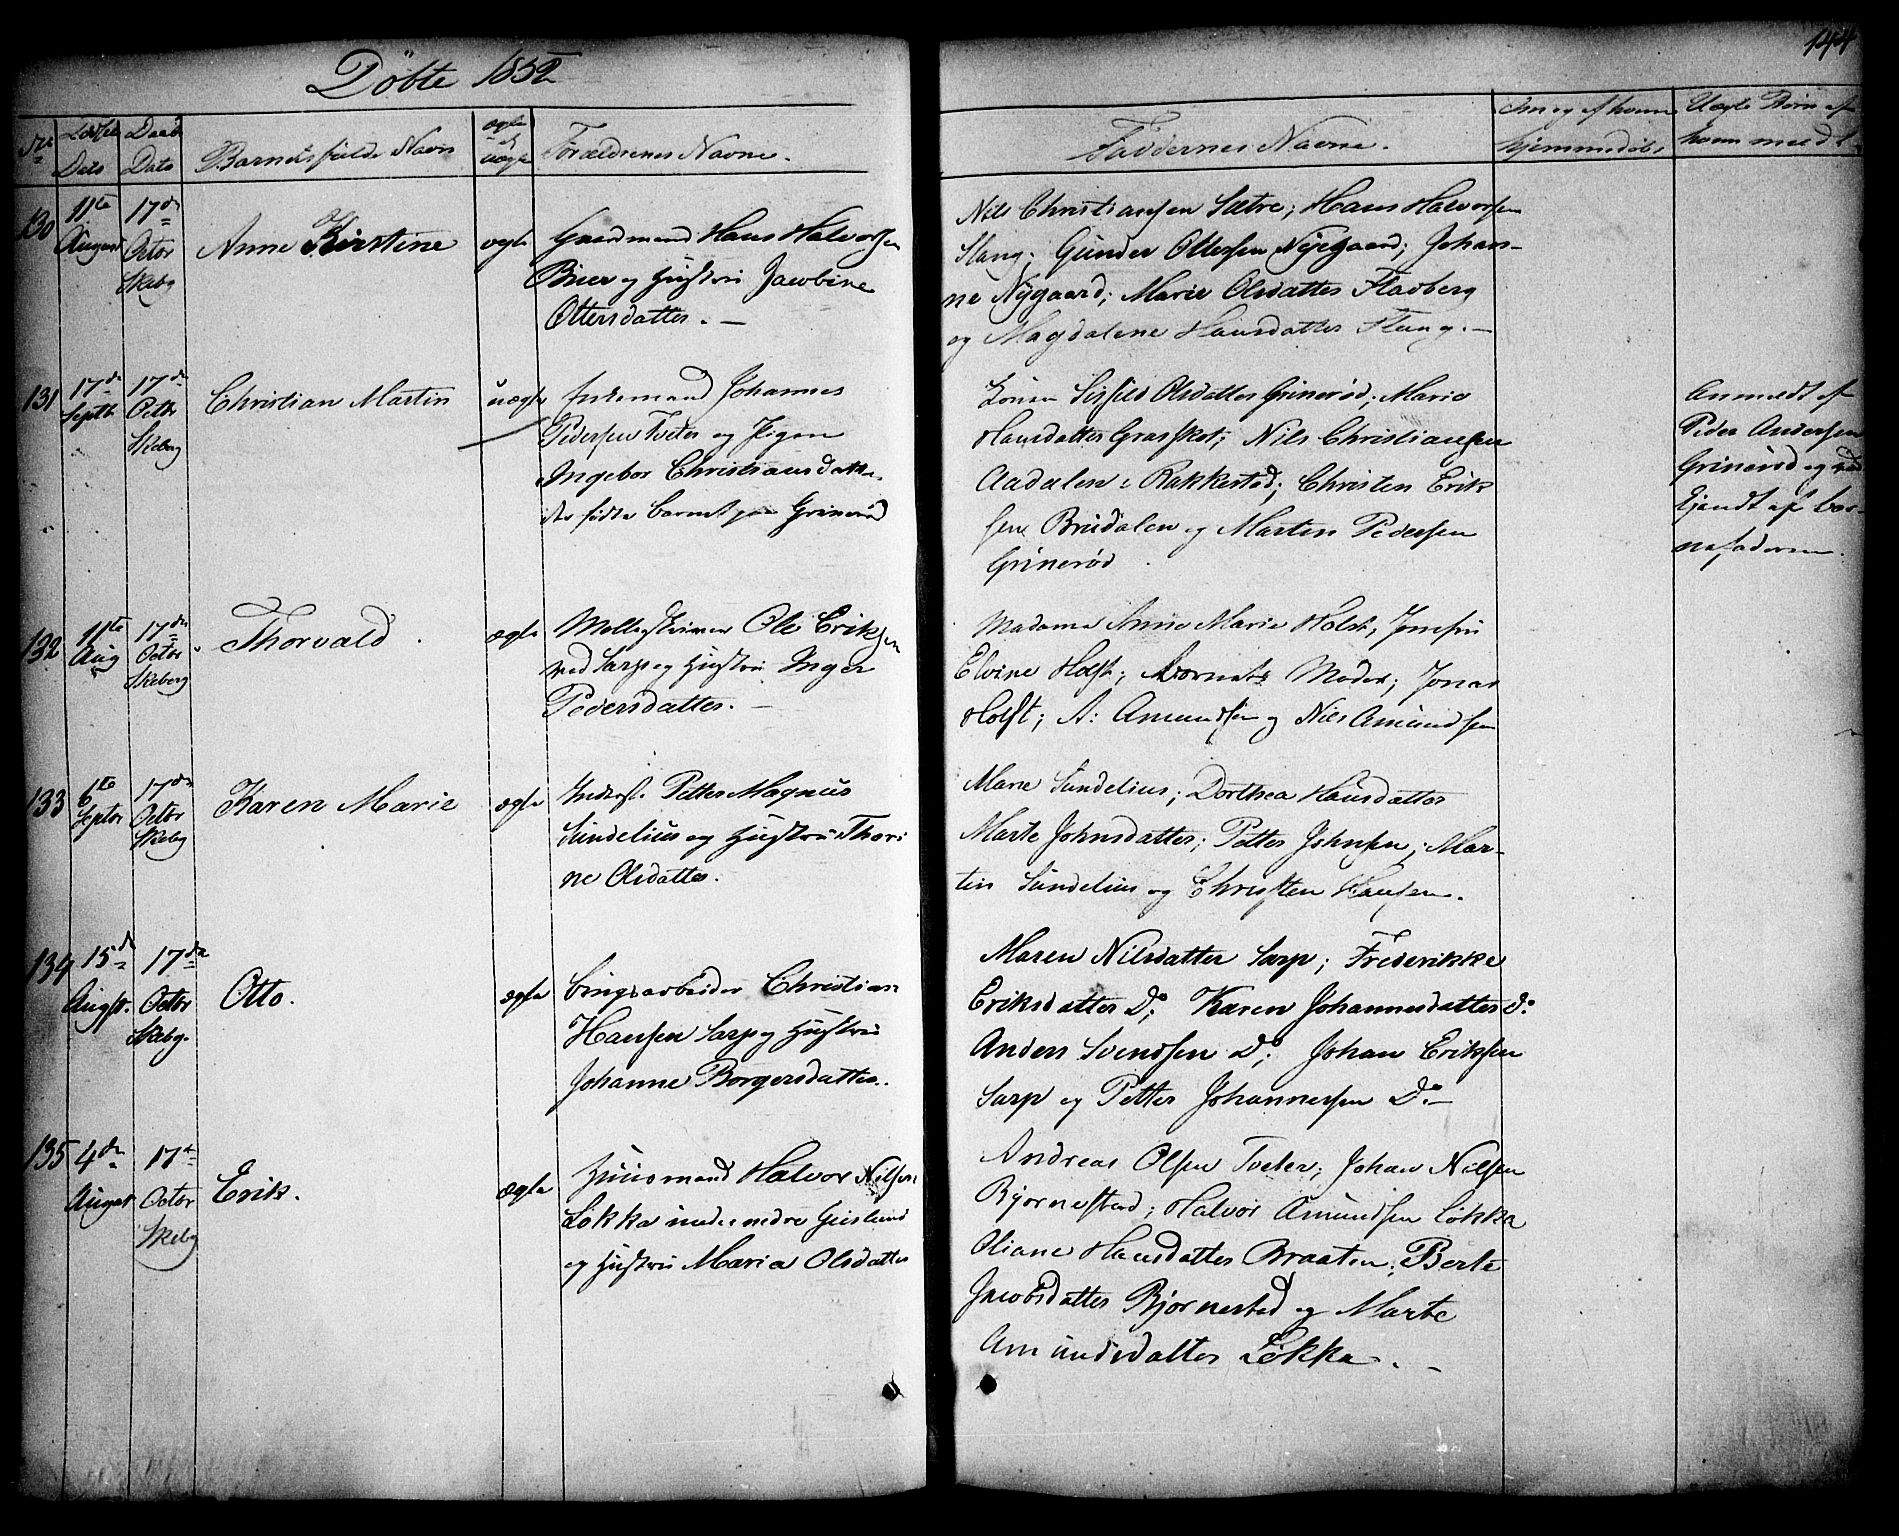 Döbte 1852
144
No
Födsels
Dato
Daabs
Dato
Barnets fulde Navn
ægte
uægte
Forældrenes Navne.
Faddernes Navne.
hjemmedøbt
Uægte Børn af
hvem meldt
130
11te
August
17de
Octbr
Skebg
Anne Kirstine
ægte
Gaardmand Hans Halvorsen
og Hustru Jacobine
Ottersdatter. —
Nils Christiansen Sætre; Hans Halvorsen
Gunder Ottersen Nyegaard; Johan-
ne Nygaard; Marie Olsdatter Fladberg
og Magdalene Hansdatter
131
17de
Septb
17de
Octbr
Skeberg
Christian Martin
uægte
Johannes
Pedersen Tveter og Pigen
Ingebor Christiansdatter
født Barnet paa Grinerød
Olsdatter Grinerød; Marie
Hansdatter; Nils Christiansen
Aadalen i Rakkestad; Christen Erik
sen Brudalen og Martin Pedersen
Grinerød
Anmeldt af
Peder Andersen
Grinerød og ved
kjendt af bar-
nefaderen.
132
11te
Aug
17de
Octbr
Skeberg
Thorvald
ægte
Ole Eriksen
ved Sarp og Hustru Inger
Pedersdatter. —
Madame Anne Marie Holst; Jomfru
Elvine Holst; Barnets Moder; Jonas
Holst; A: Amundsen og Nils Amundsen
133
6te
Septbr
17de
Octbr
Skebg
Karen Marie
ægte
Inderst Petter Magnus
Sundelius og Hustru Thori
ne Olsdatter.
Marie Sundelius; Dorthea Hansdatter
Marte Johnsdatter; Petter Johnsen; Mar-
tin Sundelius og Christen Hansen.
134
15de
Augst.
17de
Octbr
Skebg.
Otto.
ægte
Brugsarbeider Christian
Hansen Sarp og Hustru
Johanne Borgersdatter.
Maren Nilsdatter Sarp; Frederikke
Eriksdatter Do; Karen Johannesdatter Do
Anders Svendsen Do; Johan Eriksen
Sarp og Petter Johannessen Do —
135
4de
August
17de
Octbr
Skebg
Erik.
ægte
Huusmand Halvor Nilsen
Løkka under nedre
og Hustru Maria Olsdatter
Andreas Olsen Tveter; Johan Nilsen
Bjørnestad; Halvor Amundsen Løkka
Oliane Hansdatter Braaten; Berte
Jacobsdatter Bjørnestad og Marte
Amundsdatter Løkka. —